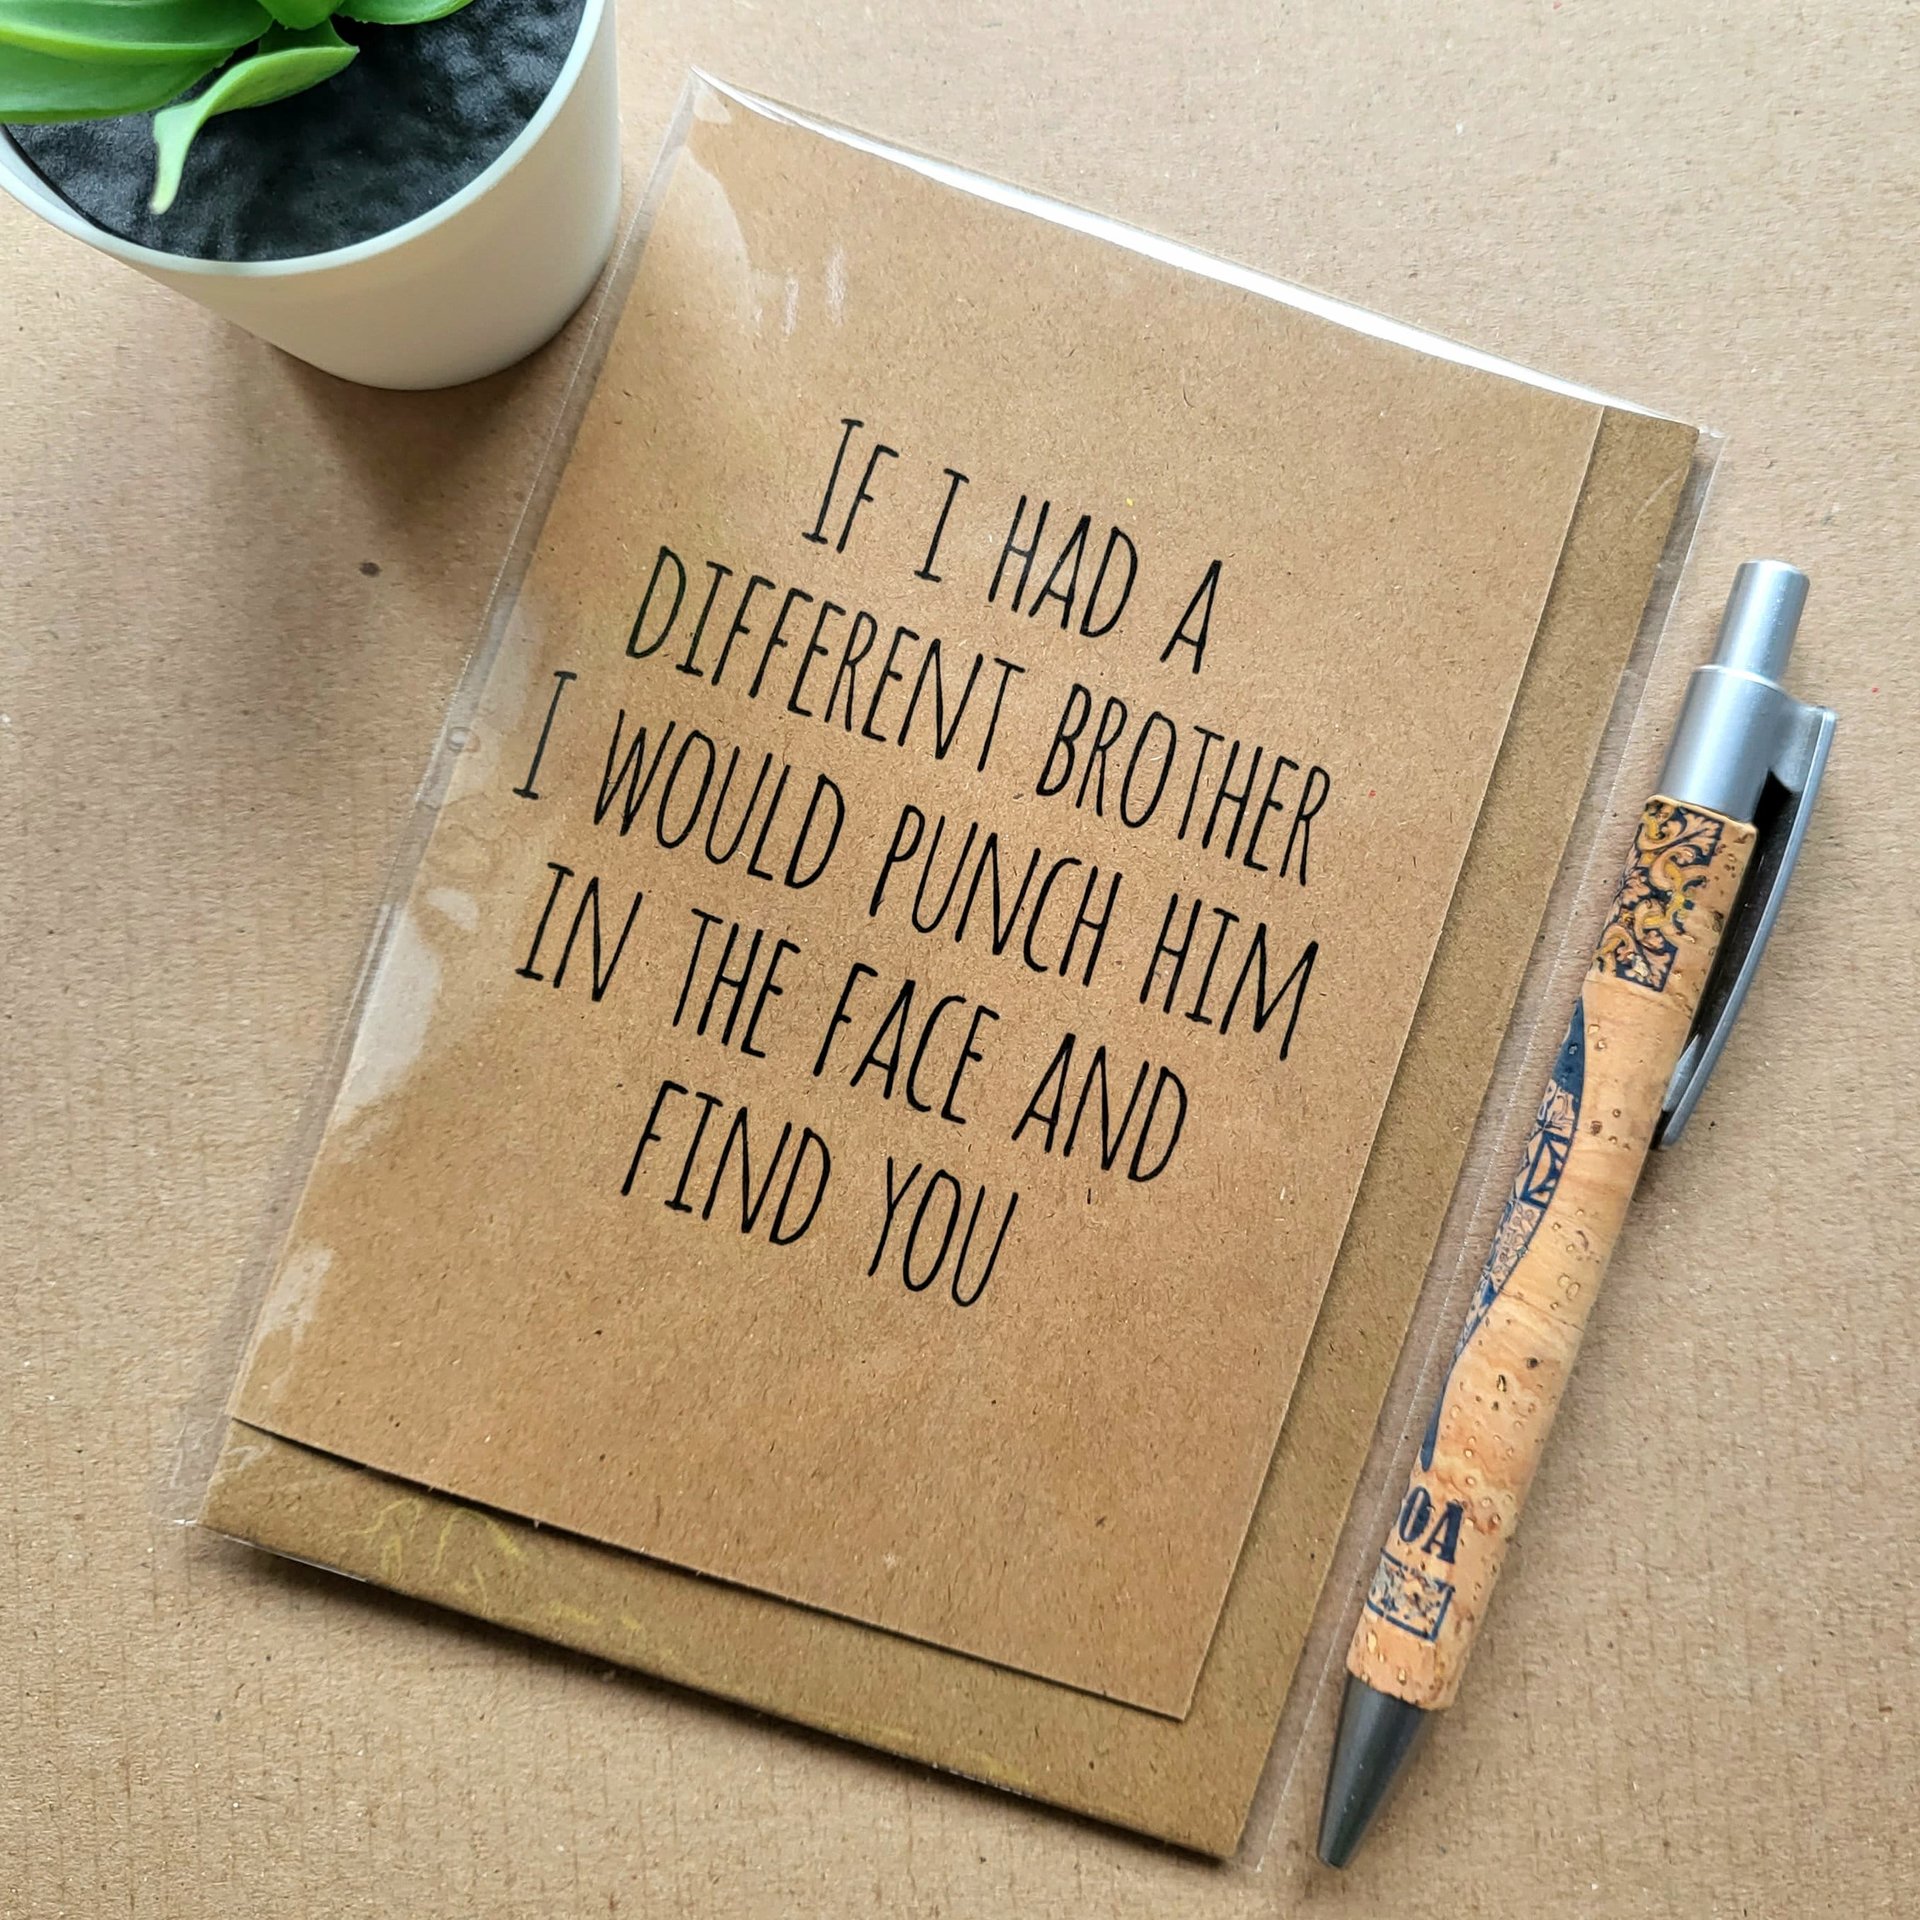 IF I HAD A
DIFFERENT BROTHER
I WOULD PUNCH HIM
IN THE FACE AND
FIND YOU
OA